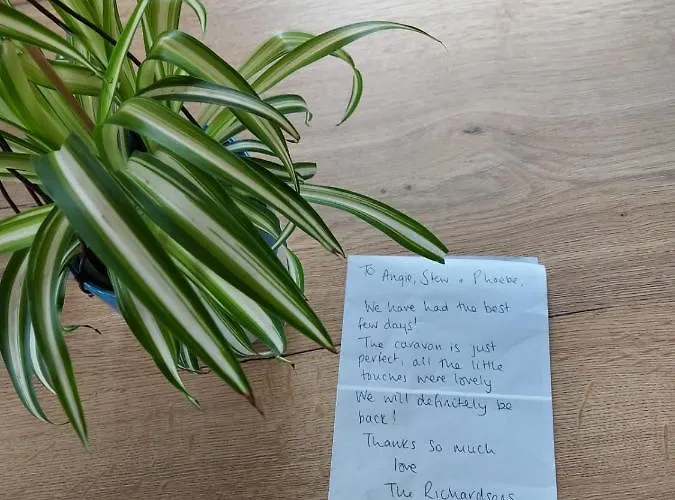 To Angie, Stew + Phoebe,
We have had the best
few days!
The caravan is just
perfect, all the little
touches were lovely
We will definitely be
back!
Thanks so much
love
The Richardsons